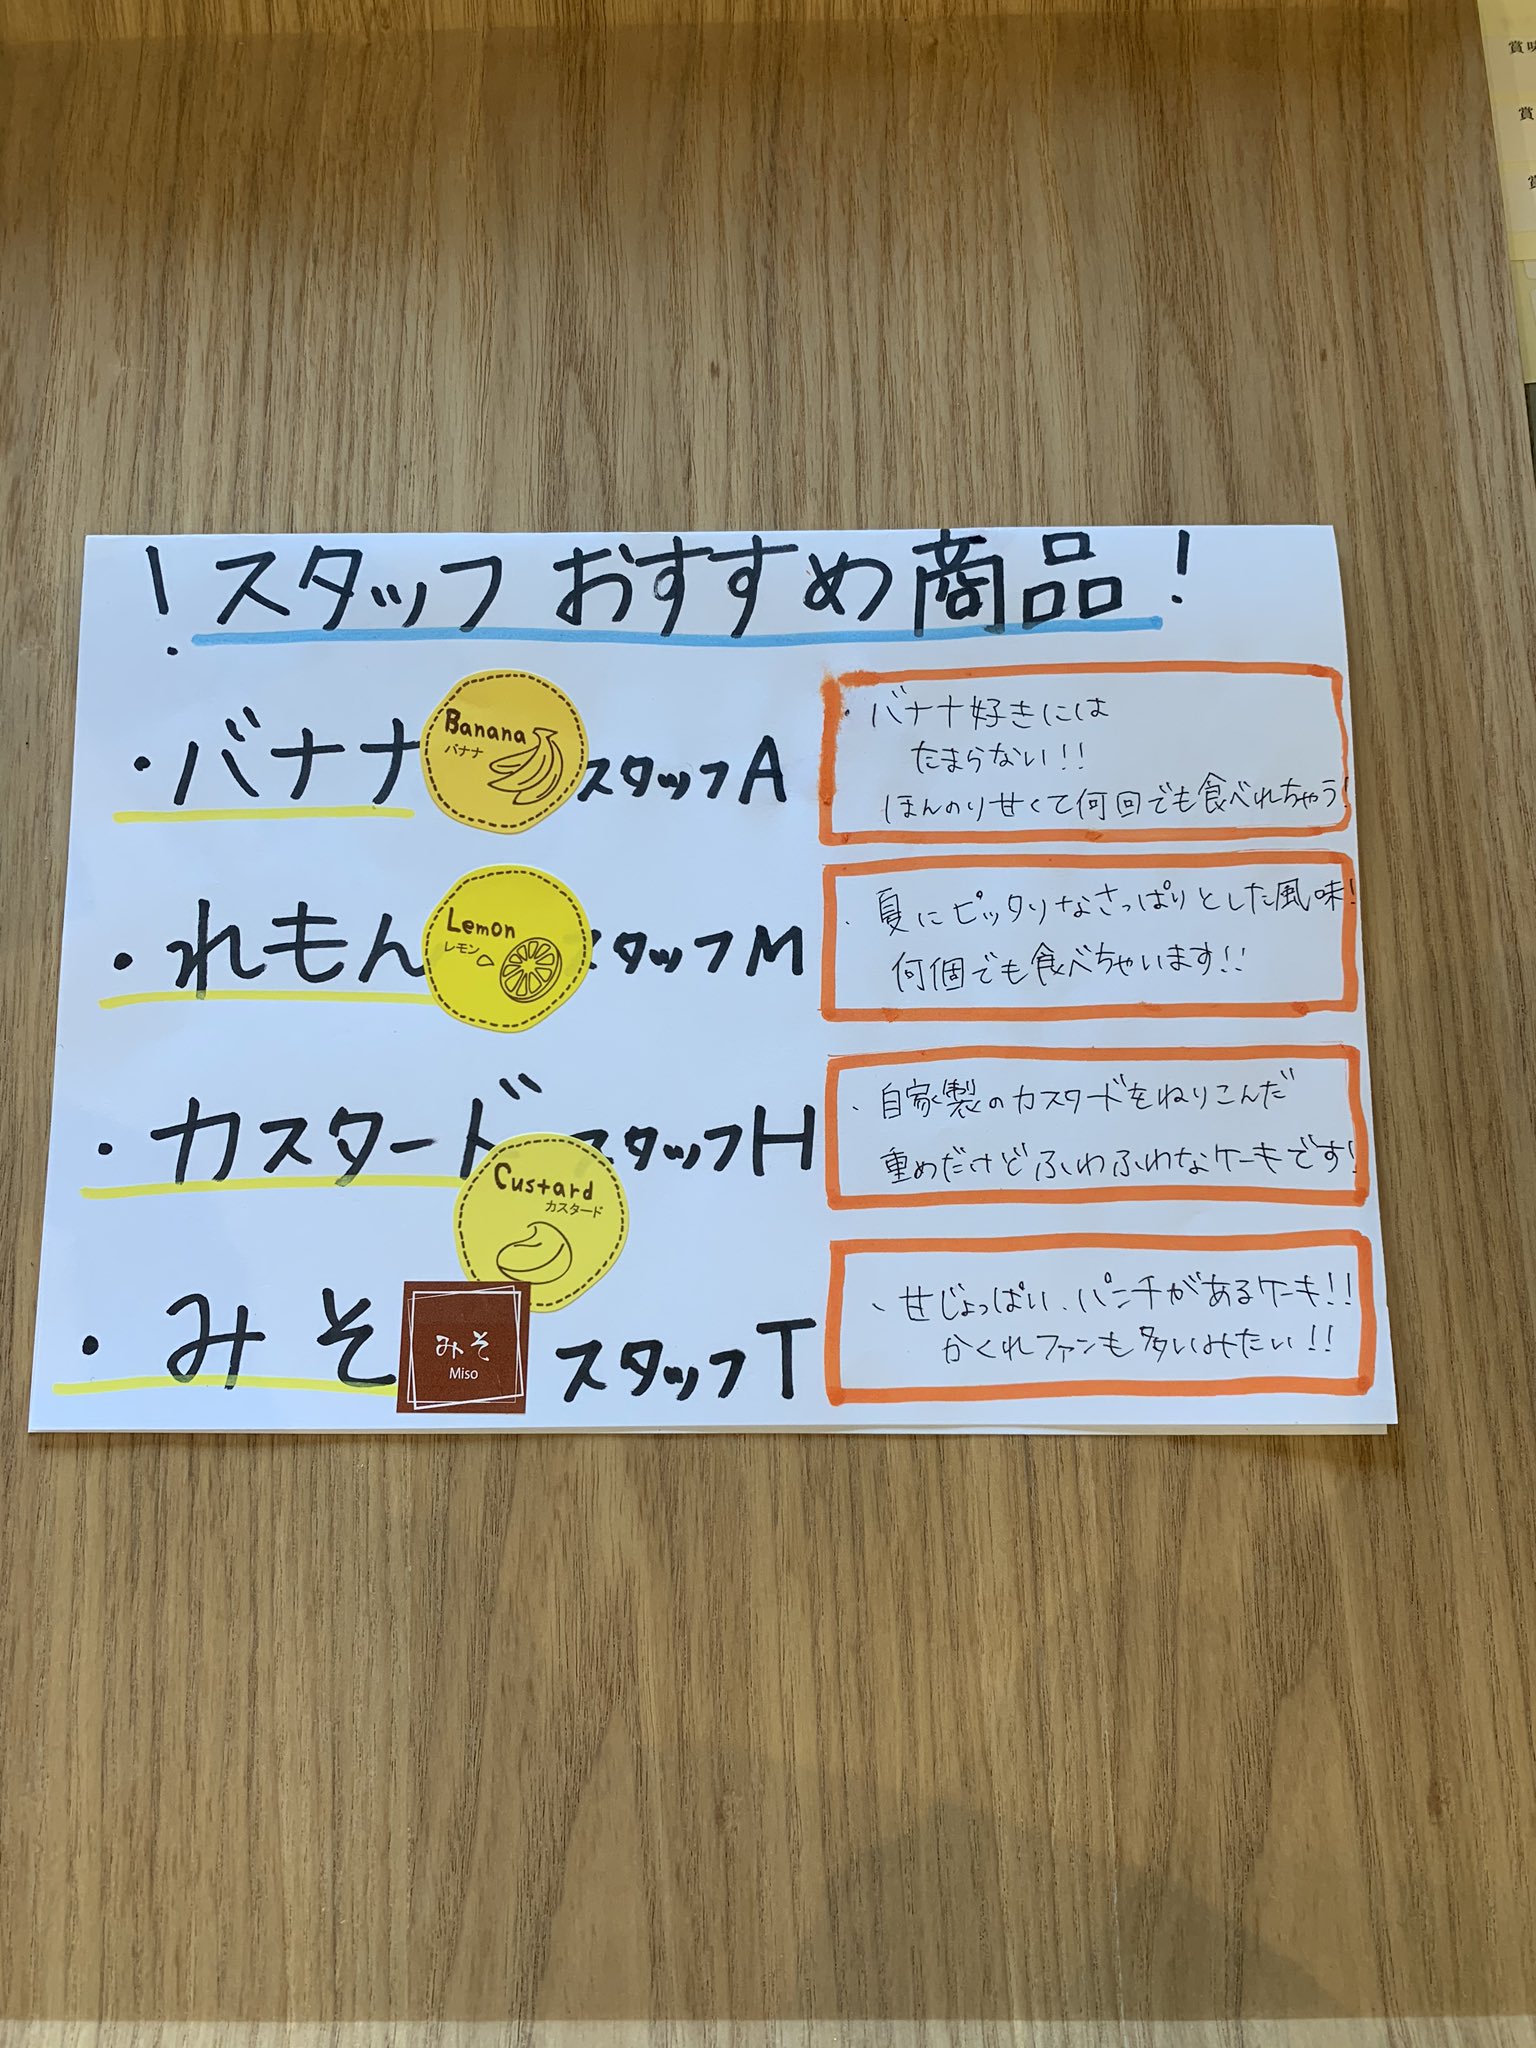 ！スタッフおすすめ商品！
・バナナ
Banana
バナナ
スタッフA
・バナナ好きには
たまらない！！
ほんのり甘くて何回でも食べれちゃう！
・れもん
Lemon
レモン
スタッフM
・夏にピッタリなさっぱりとした風味！
何個でも食べちゃいます！！
・カスタード
スタッフH
Custard
カスタード
・自家製のカスタードをねりこんだ
重めだけどふわふわなケーキです！
・みそ
みそ
Miso
スタッフT
、甘じょっぱい、パンチがあるケーキ！！
かくれファンも多いみたい！！
賞味
賞
賞